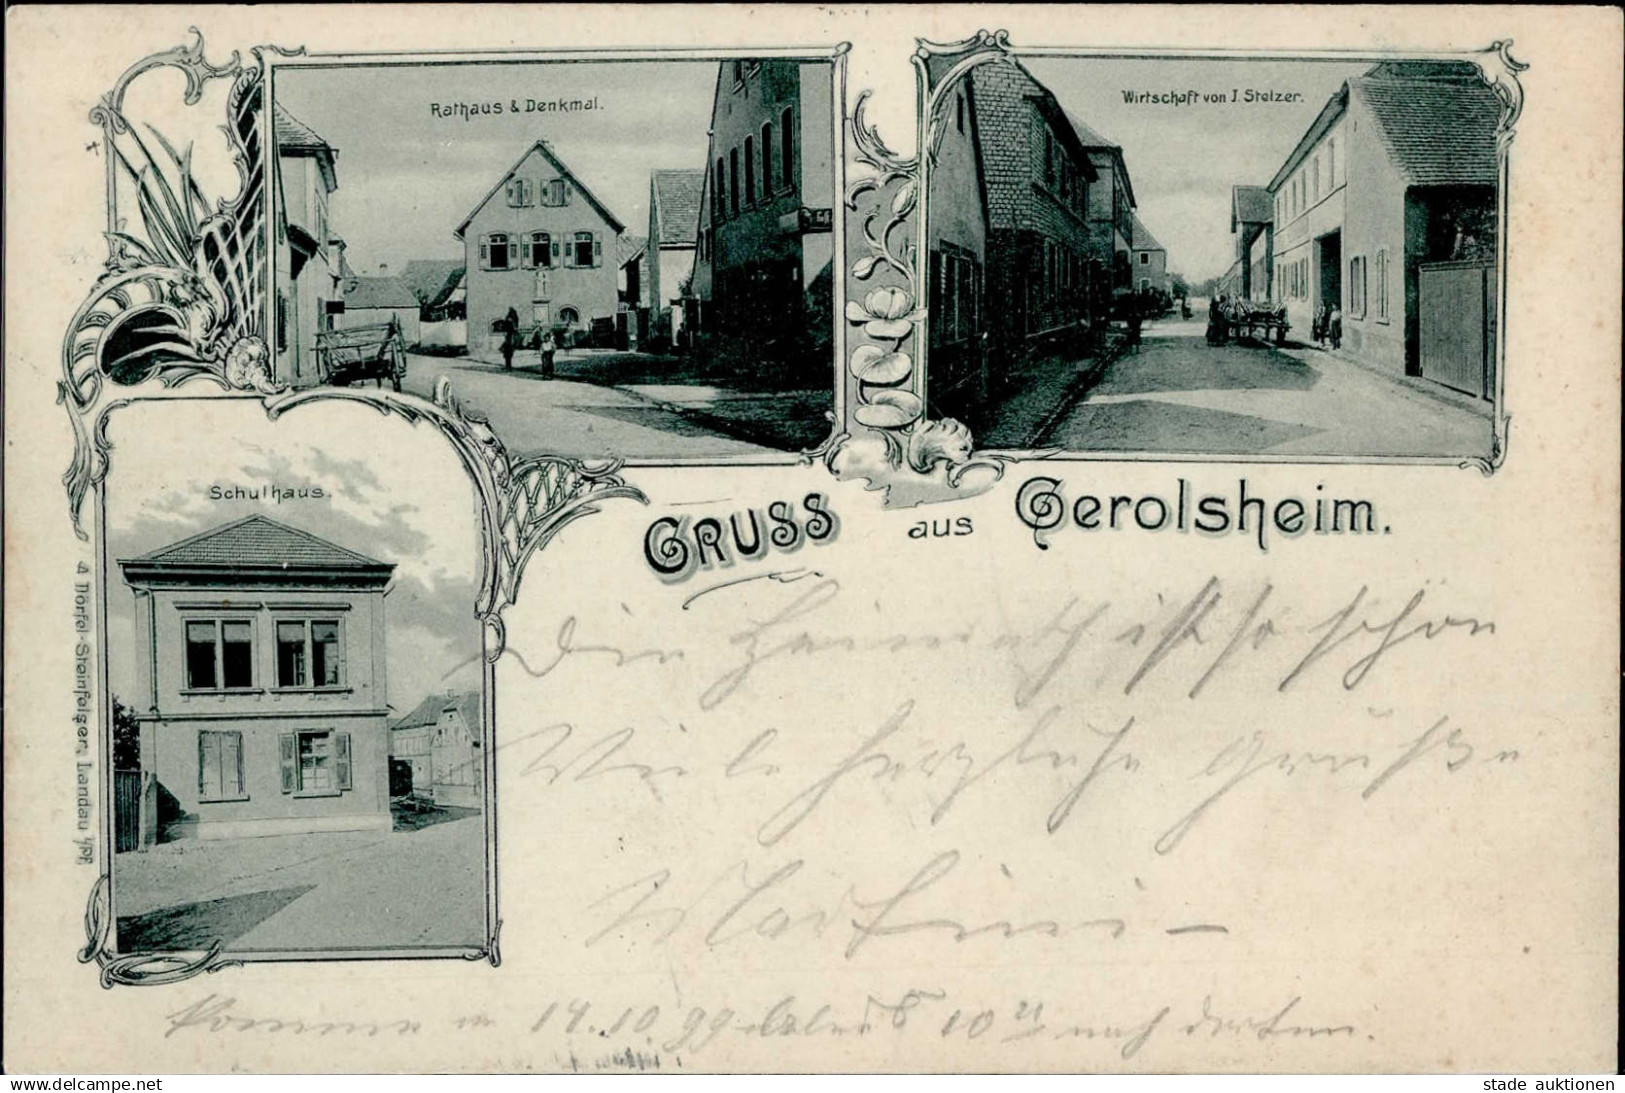 Rathaus & Denkmal.
Wirtschaft von J. Stelzer.
Schulhaus.
GRUSS aus Gerolsheim.
A Dörfel-Steinfelser, Landau i/Pf.
Die Heimath ist so schön
Viele herzliche Grüße
Martini -
Komme 14.10 99 Abends 10 21 nach dorten.
www.delcampe.net
stade auktionen